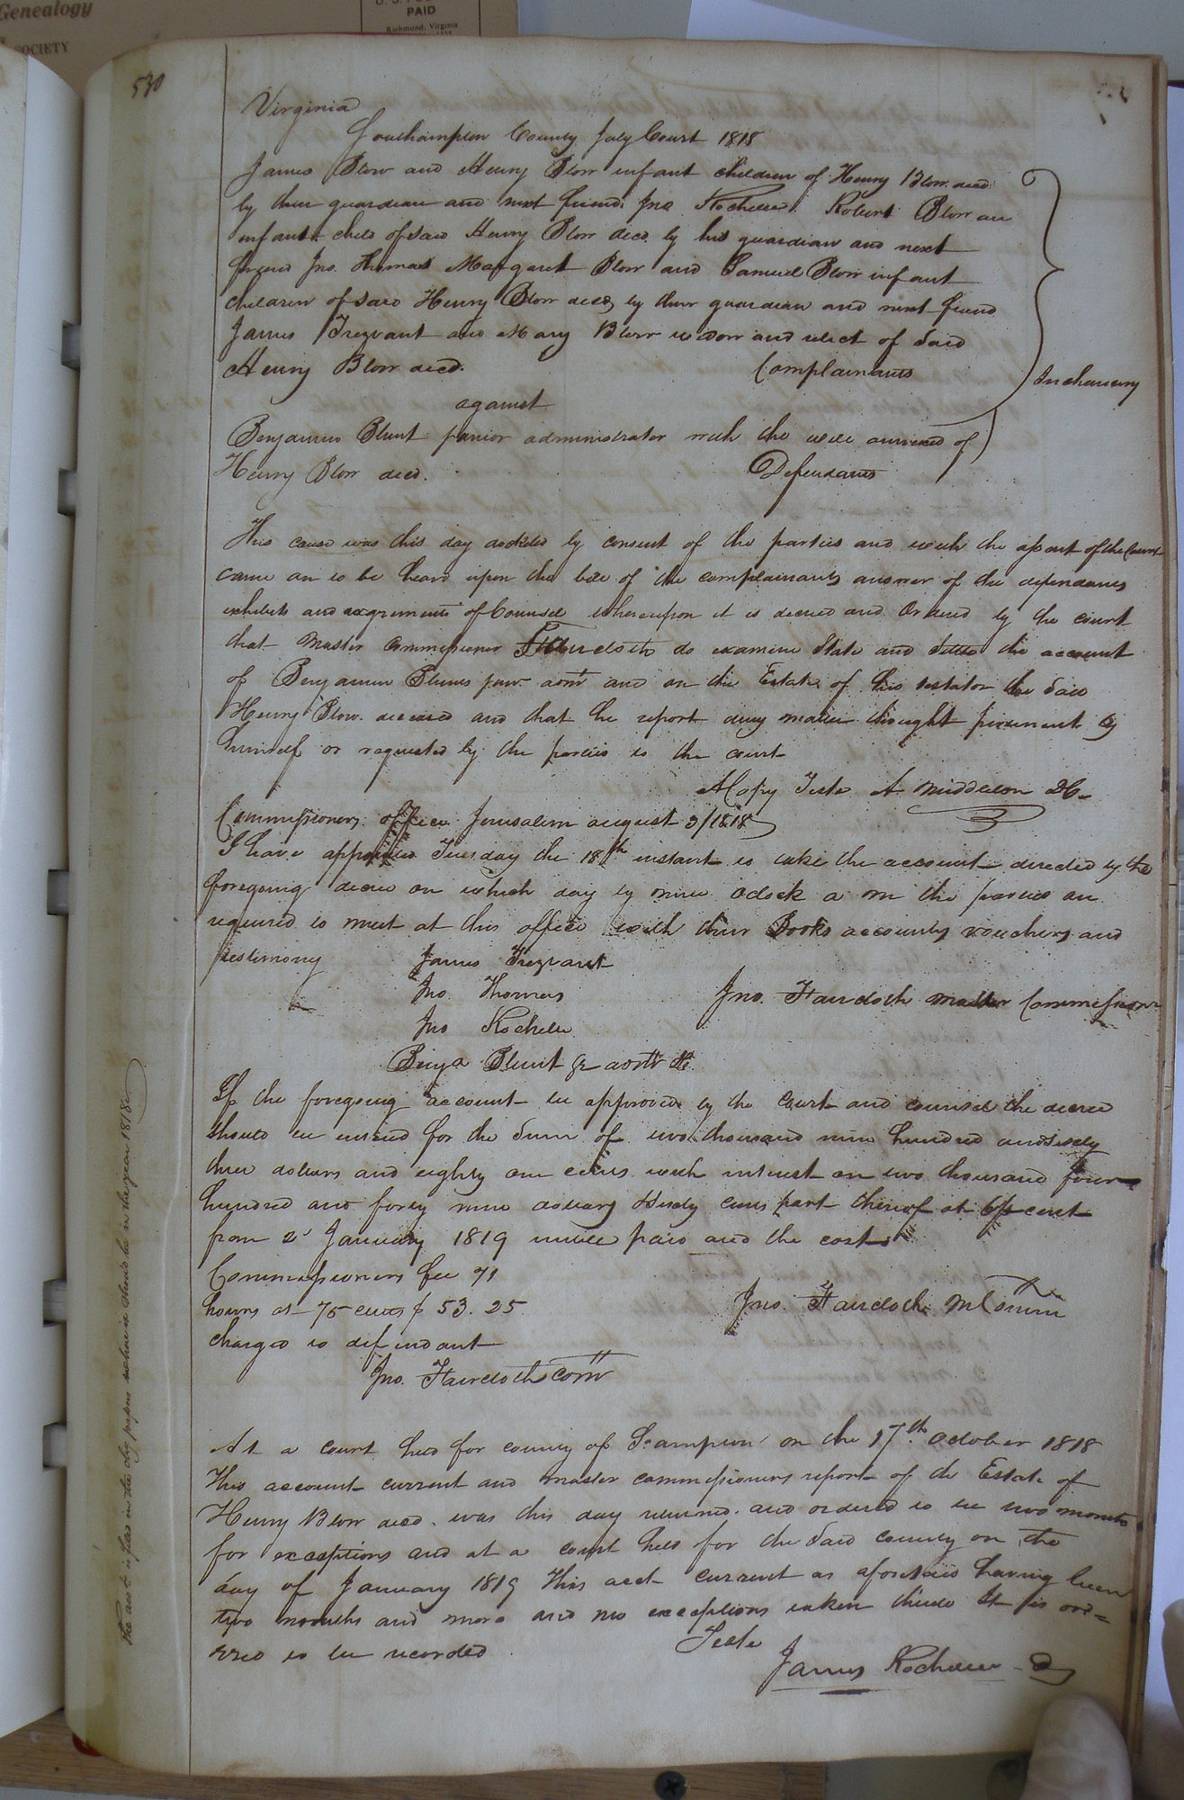 Genealogy
SOCIETY
PAID
Richmond, Virginia
530
Virginia
Southampton County July Court 1818
James Blow and Henry Blow infant children of Henry Blow decd
by their guardian and next friend Jno Rochelle. Robert Blow an
infant child of said Henry Blow decd. by his guardian and next
friend Jno. Thomas Margaret Blow and Samuel Blow infant
children of said Henry Blow decd by their guardian and next friend
James Trezvant and Mary Blow widow and relict of said
Henry Blow decd. Complainants
In chancery
against
Benjamin Blunt junior administrator with the will annexed of
Henry Blow decd. Defendants
This cause was this day docketed by consent of the parties and with the assent of the Court
came on to be heard upon the bill of the complainants answer of the defendants
exhibits and arguments of Counsel whereupon it is decreed and Ordered by the court
that Master Commissioner Faircloth do examine State and Settle the account
of Benjamin Blunts junr. admr and on the Estate of his testator the said
Henry Blow. deceased and that he report any matter thought pertinent by
himself or requested by the parties to the court
A Copy Teste A Middleton DC
Commissioners office Jerusalem august 3/1818
I have appointed Tuesday the 18th instant to take the account directed by the
foregoing decree on which day by nine oclock a m the parties are
required to meet at this office with their Books accounts vouchers and
testimony James Trezvant
Jno. Thomas Jno. Faircloth master Commissioner
Jno Rochelle
Benja Blunt jr admr &c.
If the foregoing account be approved by the Court and counsel the decree
should be entered for the sum of two thousand nine hundred and sixty
three dollars and eighty one cents with interest on two thousand four
hundred and forty nine dollars thirty cents part thereof at 6 pr cent
from 2d January 1819 untill paid and the costs
Commissioners fee 71
hours at 75 cents $ 53.25 Jno. Faircloth M Comm
charged to defendant
Jno. Faircloth comr
At a court held for county of S.ampton on the 17th October 1818
This account current and master commissioners report of the Estate of
Henry Blow decd. was this day returned. and ordered to lie two months
for exceptions and at a court held for the said county on the
day of January 1819 This acct current as aforesaid having been
two months and more and no exceptions taken thereto It is ord=
ered to be recorded
Teste
James Rochelle
The acct is filed in the clks papers
in the year 1818